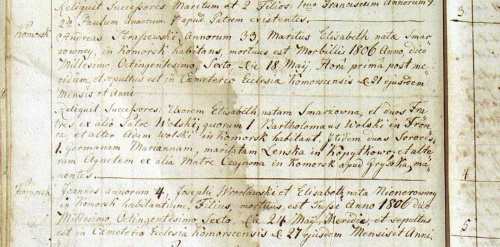 reliquit Successores Maritum et 2 Filios: 1mo Franciscum Annorum
2do Paulum Annorum 7 apud Patrem existentes.
Komorsk
Andreas Annorum 33, Maritus Elisabeth nata Smar
zowney, in Komorsk habitans, mortuus est Morbillis 1806 Anno, dico
Millesimo Octingentesimo, Sexto, Die 18 Maÿ Hora prima post me
ridiem, et sepultus est in Cameterio Ecclesia Komorscensis D. 21 ejusdem
Mensis et Anni
reliquit Successores: Uxorem Elisabeth natam Smarzowna, et duos Fra
tres ex alio Patre Wolski, quorum 1 Bartholomæus Wolski in
et alter Adam Wolski in Komorsk habitant. itidem duas Sorores
1. germanam Mariannam, maritatam Lenska in Kopytkowo, et alte
ram Agnetem ex alia Matre in Komorsk apud ma
nentes
Komorsk
Joannes Annorum 4, Josephi et Elisabeth nata
in Komorsk habitantium, Filius, mortuus est Tussi Anno 1806 dico
Millesimo Octingentesimo Sexto Die 24 Maÿ Meridie, et sepultus
est in Cameterio Ecclesia Komorscensis D. 27 ejusdem Mensis et Anni
3
4
5